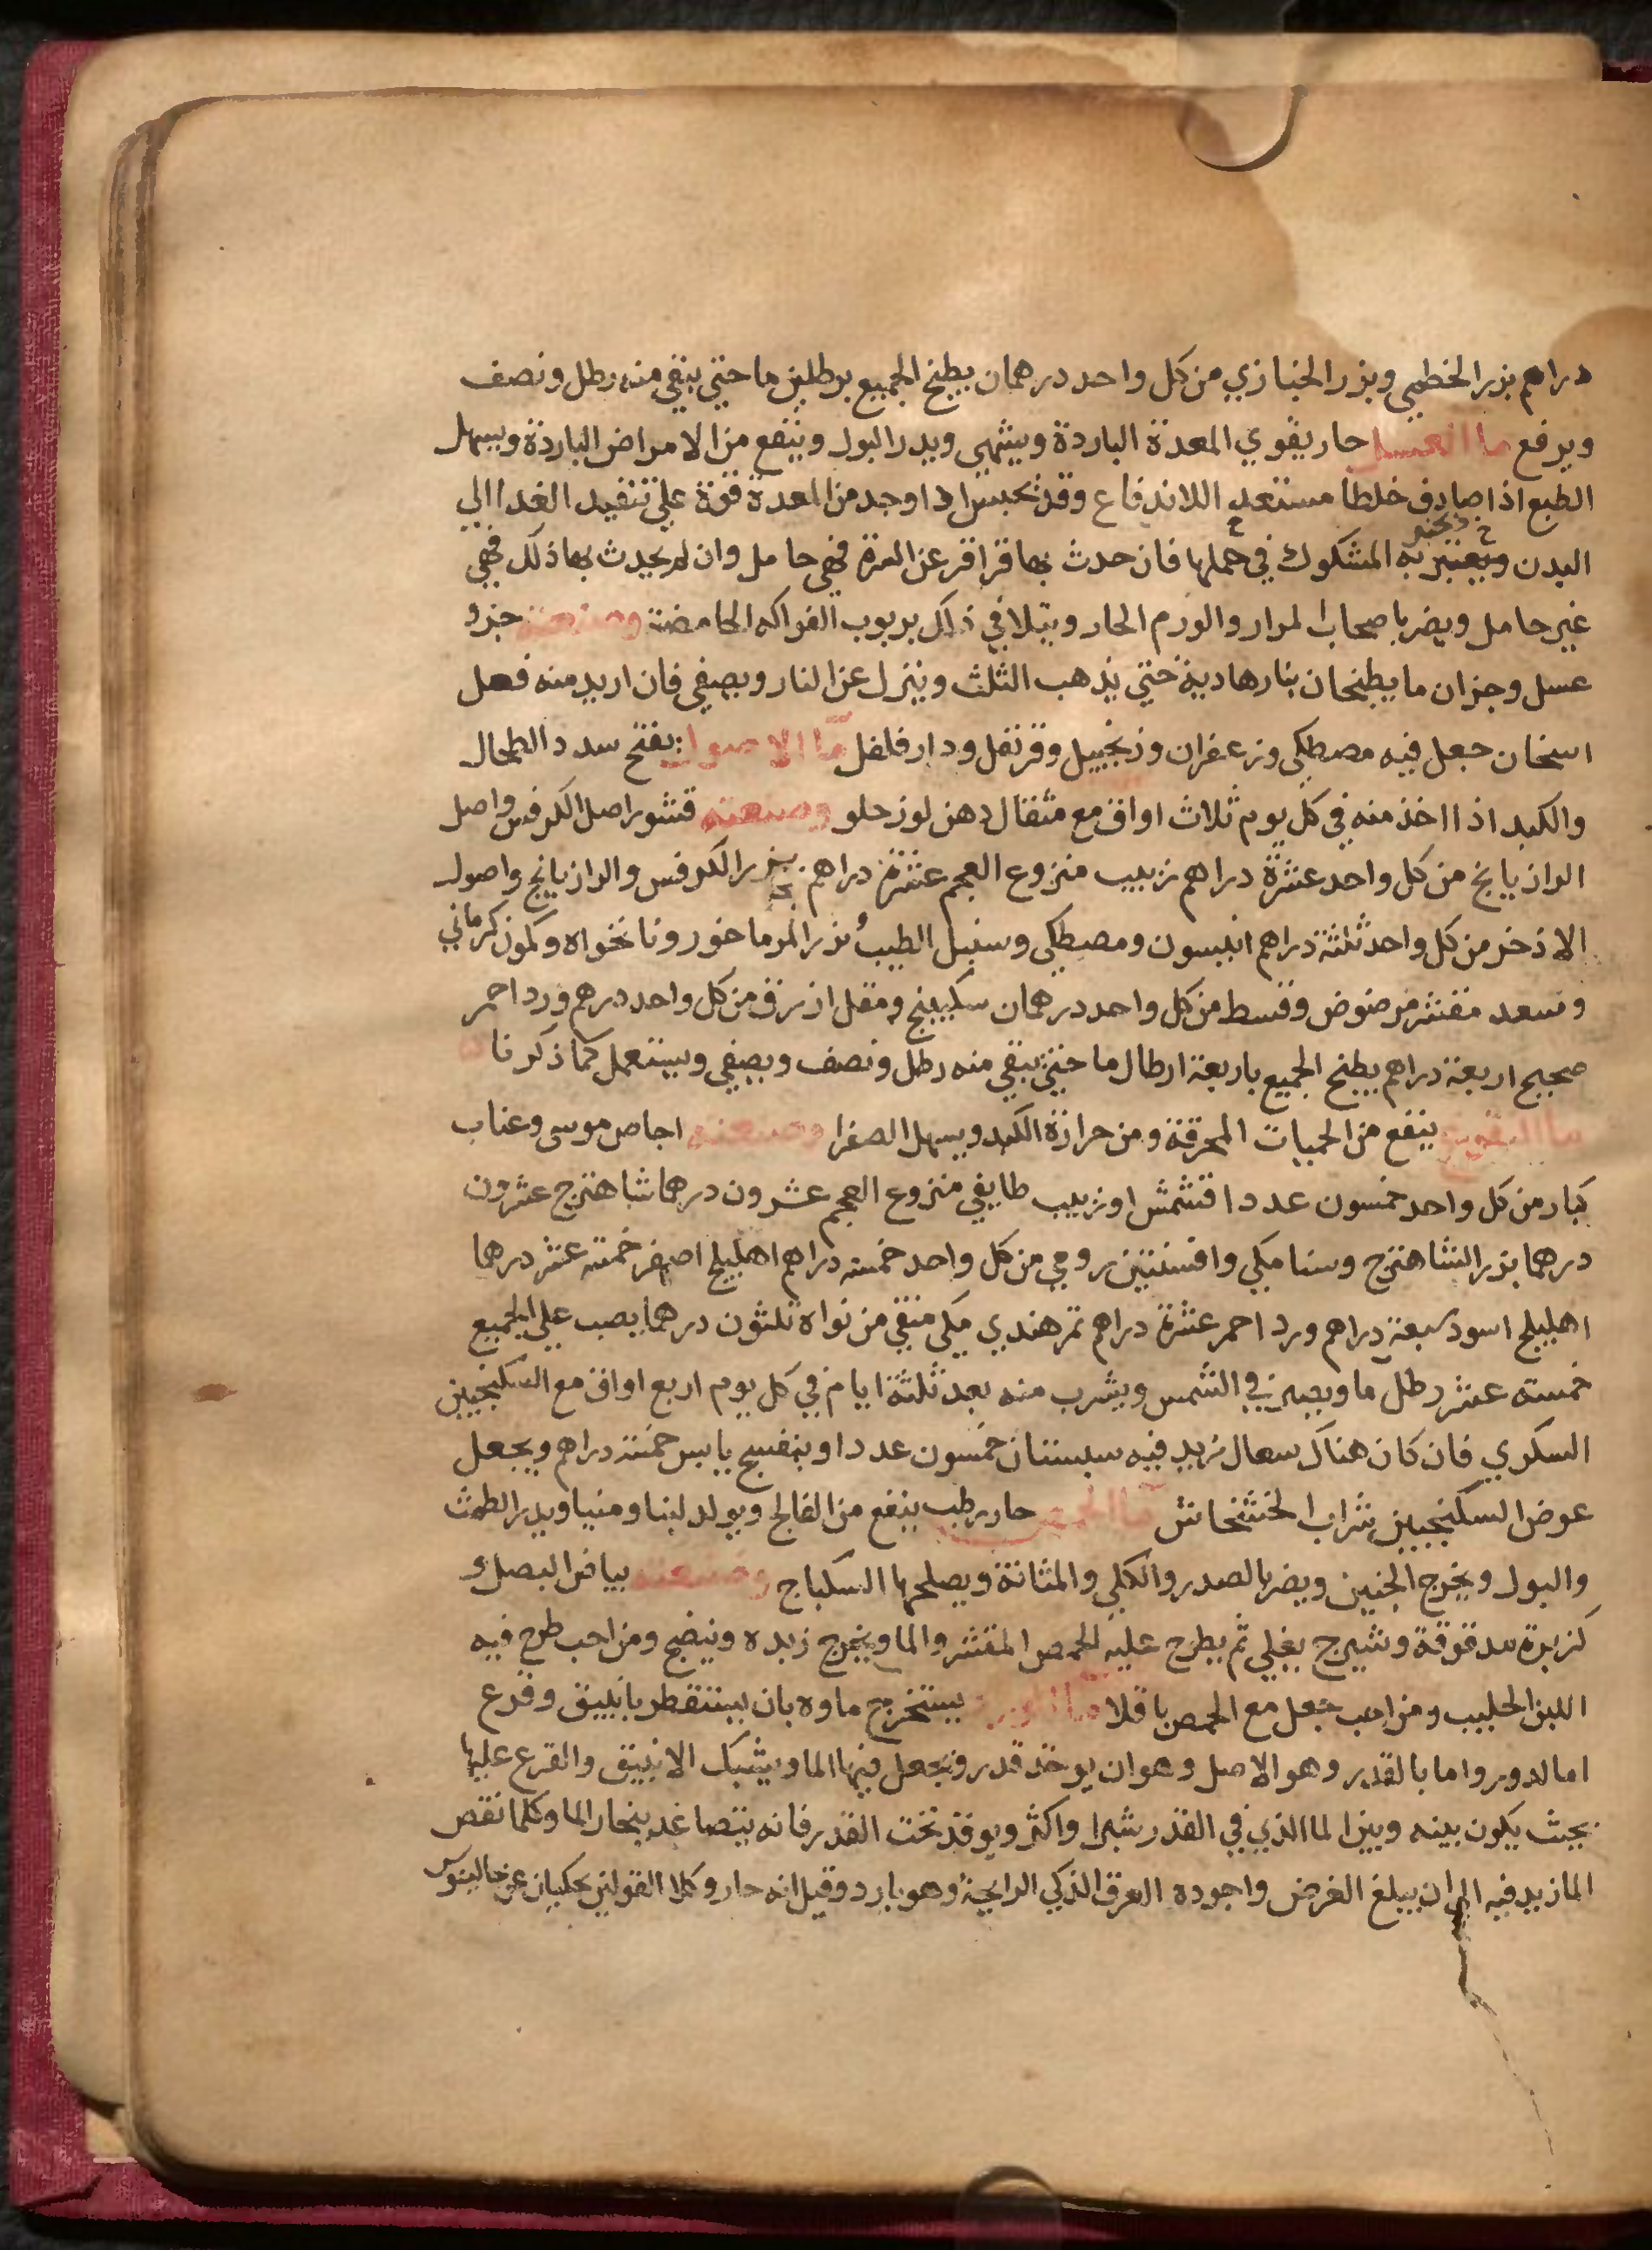 دراهم بزر الخطمي وبزر الخبازي من كل واحد درهمان يطبخ الجميع برطلين ما حتي يبقي منه رطل ونصف
ويرفع ما العسل حار يقوي المعدة الباردة ويشهي ويدر البول وينفع من الامراض الباردة ويسهل
الطبع اذا صادف خلطا مستعد اللاندفاع وقد يحبس اذا وجد من المعدة قوة علي تنفيد الغدا الي
البدن ويعتبر به المشكوك في حملها فان حدث بها قراقر عن السرة فهي حامل وان لم يحدث بها ذلك فهي
غير حامل ويضر باصحاب المرار والورم الحار ويتلافي ذلك بربوب الفواكه الحامضة وصنعته جزو
عسل وجزان ما يطبخان بنار هادية حتي يذهب الثلث وينزل عن النار ويصفي فان اريد منه فعل
اسخان جعل فيه مصطكي وزعفران وزنجبيل وقرنفل ودار فلفل ما الاصول يفتح سدد الطحال
والكبد اذا اخذ منه في كل يوم ثلاث اواق مع مثقال دهن لوز حلو وصنعته قشور اصل الكرفس واصل
الرازيانج من كل واحد عشرة دراهم زبيب منزوع العجم عشرة دراهم بزر الكرفس والرازيانج واصول
الاذخر من كل واحد ثلثة دراهم انيسون ومصطكي وسنبل الطيب بزر المرماخور ونانخواه وكمون كرماني
وسعد مقشر مرضوض وقسط من كل واحد درهمان سكبينج ومقل ازرق من كل واحد درهم ورد احمر
صحيح اربعة دراهم يطبخ الجميع باربعة ارطال ما حتي يبقي منه رطل ونصف ويصفي ويستعمل كما ذكرنا
ما النقوع ينفع من الحميات المحرقة ومن حرارة الكبد ويسهل الصفرا وصنعته اجاص موسى وعناب
كبار من كل واحد خمسون عددا قشمش او زبيب طايفي منزوع العجم عشرون درهما شاهترج عشرون
درهما بزر الشاهترج وسنا مكي وافسنتين رومي من كل واحد خمسه دراهم اهليلج اصفر خمسة عشر درهما
اهليلج اسود سبعة دراهم ورد احمر عشرة دراهم تمر هندي مكي منقي من نواه ثلثون درهما يصب علي الجميع
خمسته عشر رطل ما ويصير في الشمس ويشرب منه بعد ثلثة ايام في كل يوم اربع اواق مع السكنجبين
السكري فان كان هناك سعال زيد فيه سبستان خمسون عددا وبنفسج يابس خمسة دراهم ويجعل
عوض السكنجبين شراب الخشخاش ما الحمص حار رطب ينفع من الفالج ويولد لبنا ومنيا ويدر الطمث
والبول ويخرج الجنين ويضر بالصدر والكلي والمثانة ويصلحها السكباج وصنعته بياض البصل و
كزبرة مدقوقة وشيرج يغلي ثم يطرح عليه الحمص المقشر والما ويخرج زبده وينضج ومن احب طرح فيه
اللبن الحليب ومن احب جعل مع الحمص باقلا ما الورد يستخرج ماوه بان يستقطر بانبيق وقرع
اما لدوير واما بالقدر وهو الاصل وهو ان يوخذ قدر ويجعل فيها الما ويشبك الانبيق والقرع عليها
بحيث يكون بينه وبين الما الذي في القدر شبرا واكثر ويوقد تحت القدر فانه يتصاعد بخار الما وكلما نقص
الما زيد فيه الي ان يبلغ الغرض واجوده العرق الذكي الرايحة وهو بارد وقيل انه حار وكلا القولين يحكيان عن جالينوس